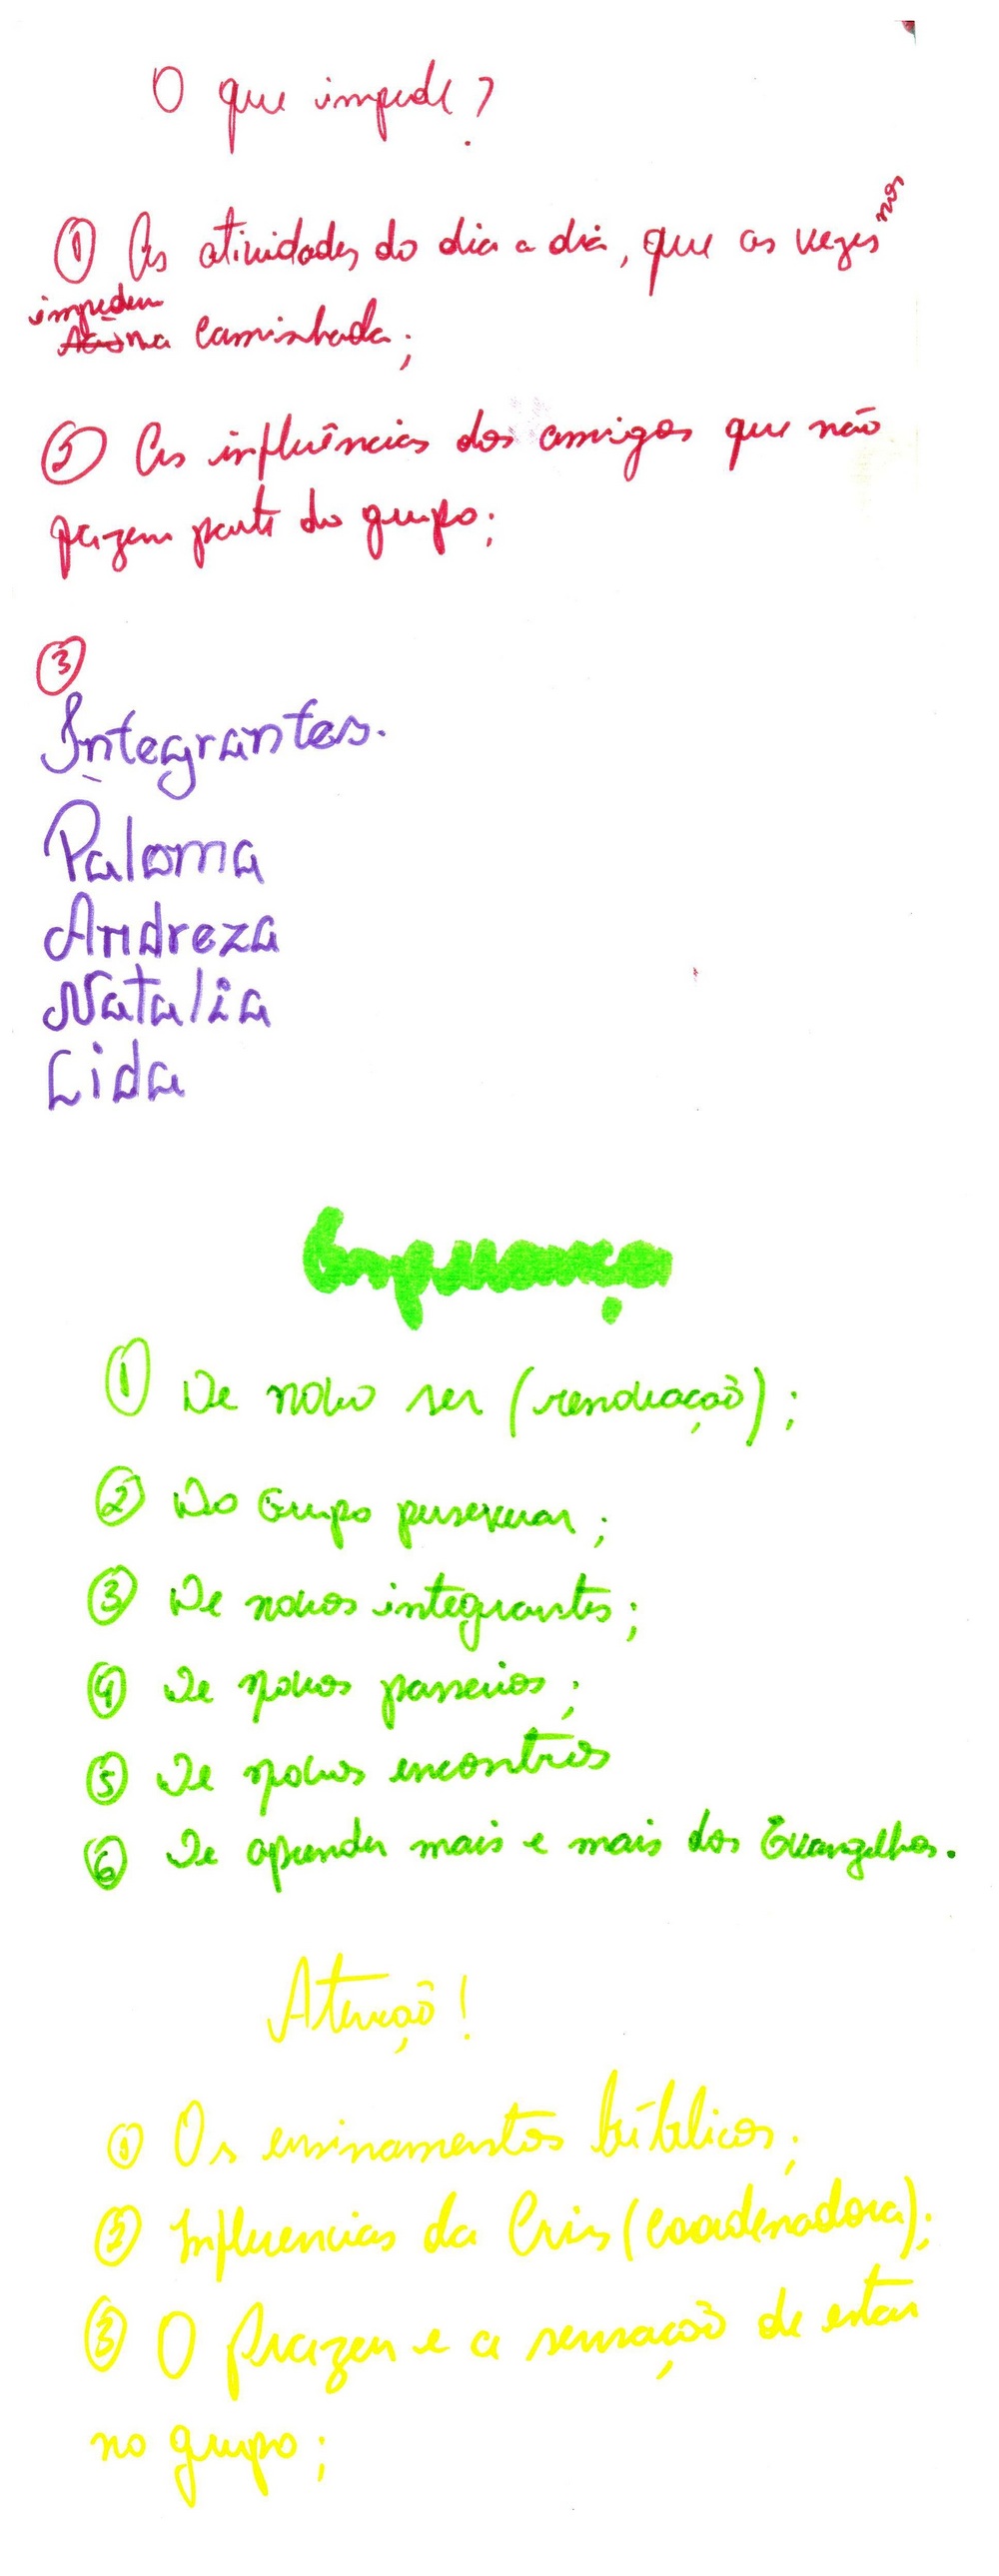 O que impede?
① As atividades do dia a dia, que as vezes nos
impedem
na caminhada;
② As influências dos amigos que não
fazem parte do grupo;
③
Integrantes.
Paloma
Andreza
Natalia
Cida
① De novo ser (renovação);
② Do Grupo perseverar;
③ De novos integrantes;
④ De novos passeios;
⑤ De novos encontros
⑥ De aprender mais e mais dos Evangelhos.
Atenção!
① Os ensinamentos bíblicos;
② Influencias da Cris (coordenadora);
③ O prazer e a sensação de estar
no grupo;